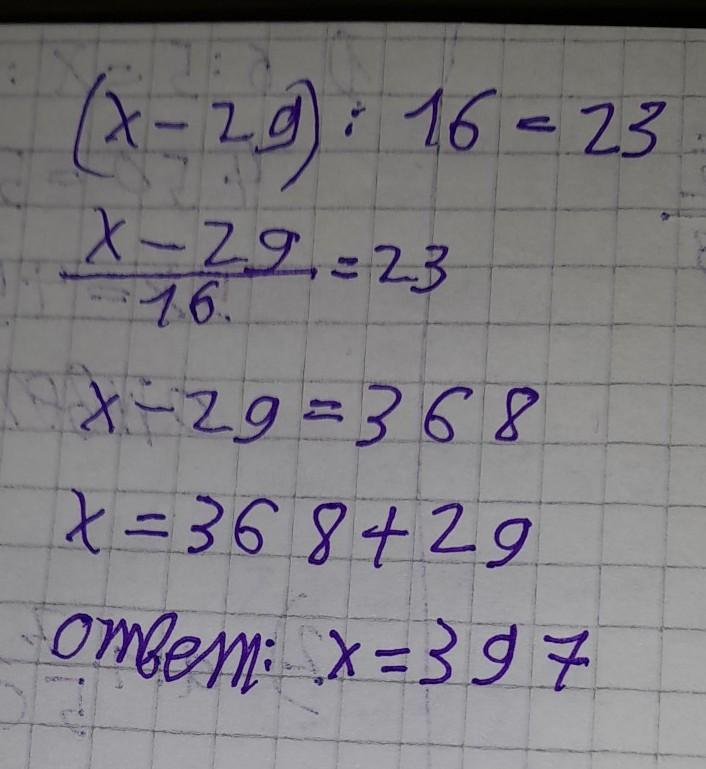 (x - 29) : 16 = 23
x - 29
16
= 23
x - 29 = 368
x = 368 + 29
ответ: x = 397